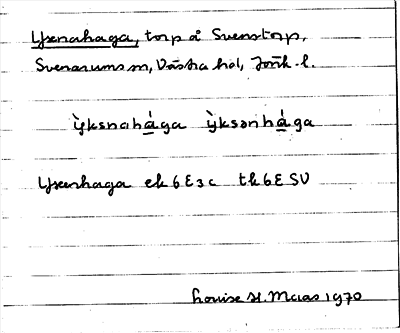 Yxenahaga, torp å Svenstorp,
Svenarums sn, Västra hd, Jönk. l.
ỳksnahága ỳksənhága
Yxenhaga ek 6 E 3 c tk 6 E SV
Louise H. Maas 1970